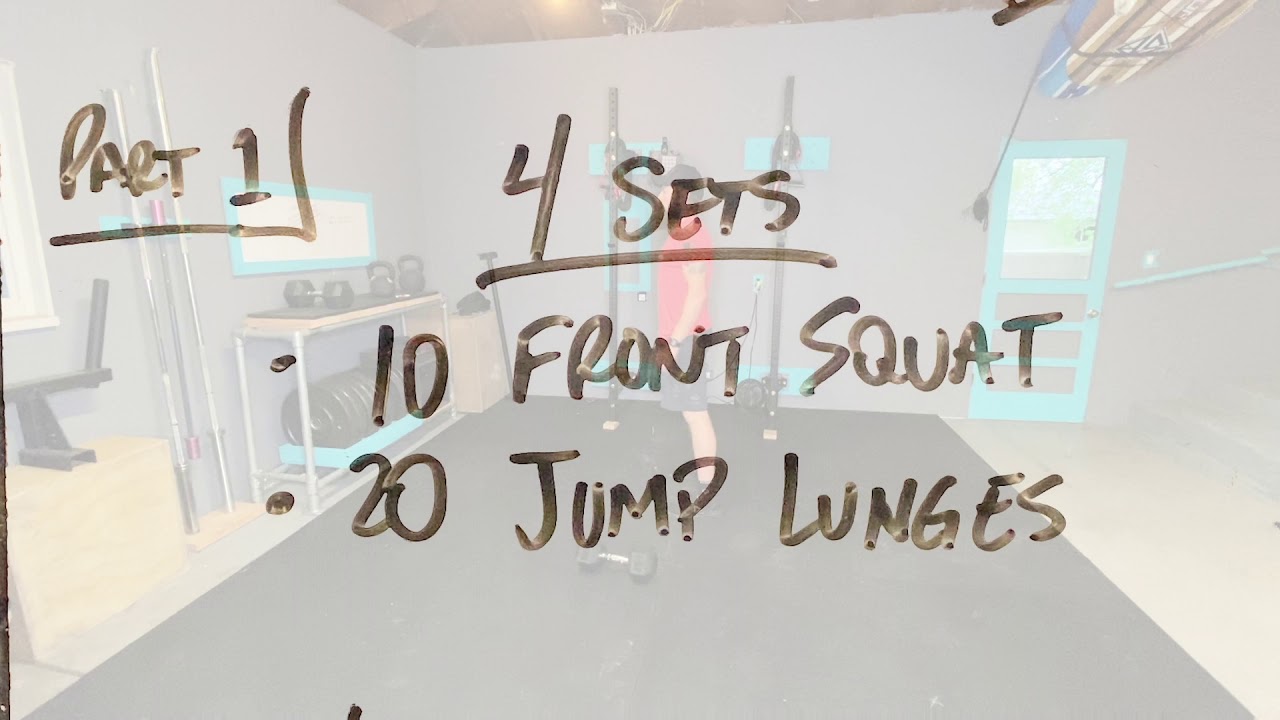 PART 1
4 SETS
· 10 FRONT SQUAT
· 20 JUMP LUNGES